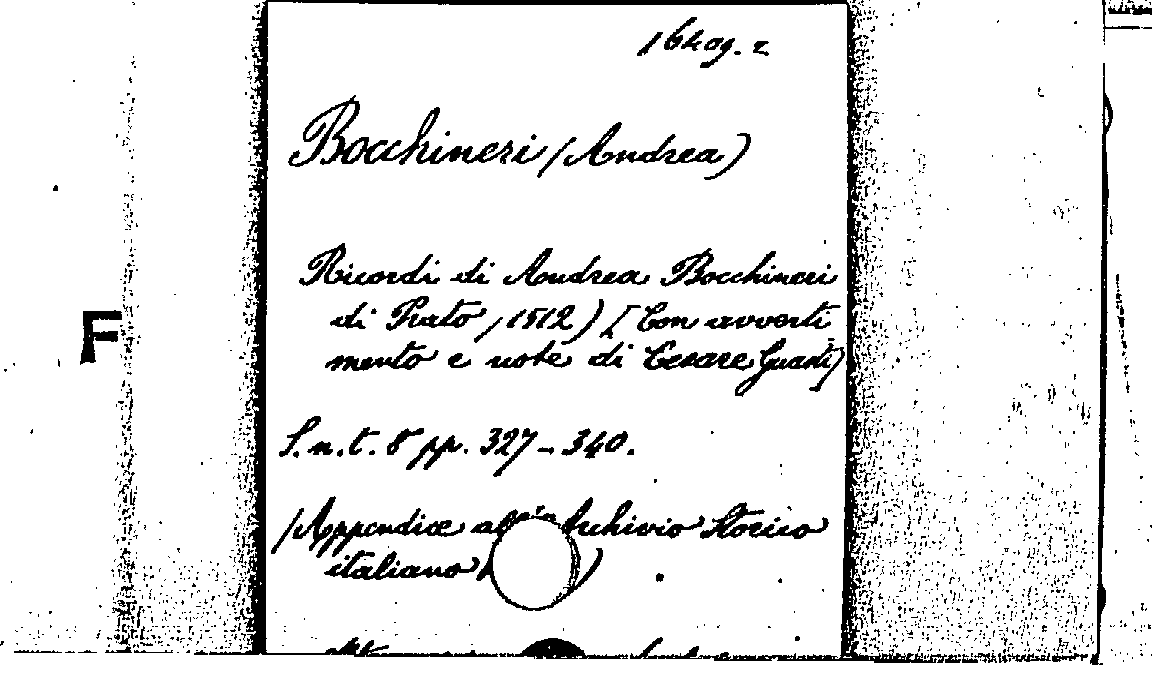 Bocchineri (Andrea)
Ricordi di Andrea Bocchineri
di Prato (1512) [Con avverti
mento e note di Cesare Guasti]
F
S.n.t. 8° pp. 327-340.
(Appendice all'Archivio Storico
italiano